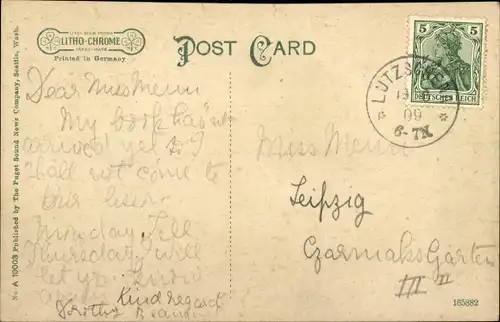 LITHO-CHROME
TRADE-MARK
Printed in Germany
POST CARD
5 5
DEUTSCHES REICH
LÜTZSCHENA
09
6-7N.
Dear Miss Menn
My book hasn't
arrived yet so I
shall not come to
this lesson
Monday. Till
Thursday. will
let you know
Kind regard
Dorothy
Miss Menn
Leipzig
Czermaks Garten
III II
165882
No. A 19003 Published by The Puget Sound News Company, Seattle, Wash.